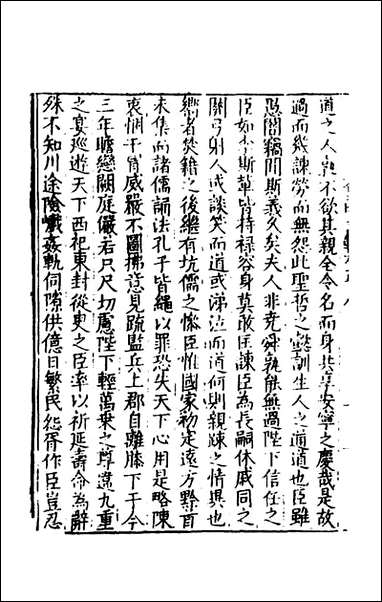 道之人孰不欲其親全令名而身共享安寧之慶哉是故
過而幾諫勞而無怨此聖哲之懿訓生人之通道也臣雖
愚闇竊聞斯義久矣夫人非堯舜孰能無過陛下信任之
臣如李斯輩皆持祿容身莫敢匡諫臣為長嗣休戚同之
關弓射人或談笑而道或涕泣而道何則親踈之情異也
鄉者焚籍之後繼有坑儒之慘臣惟國家初定遠方黔首
未集而諸儒誦法孔子皆繩以罪恐失天下心用是略陳
衷悃干冒威嚴不圖拂意見疏監兵上郡自離膝下于今
三年瞻戀闕庭儼若只尺切慮陛下輕萬乘之尊違九重
之宴巡遊天下西祀東封從史之臣率以祈延壽命為辭
殊不知川途險巇姦軌伺隙供億日繁民怨胥作臣豈忍